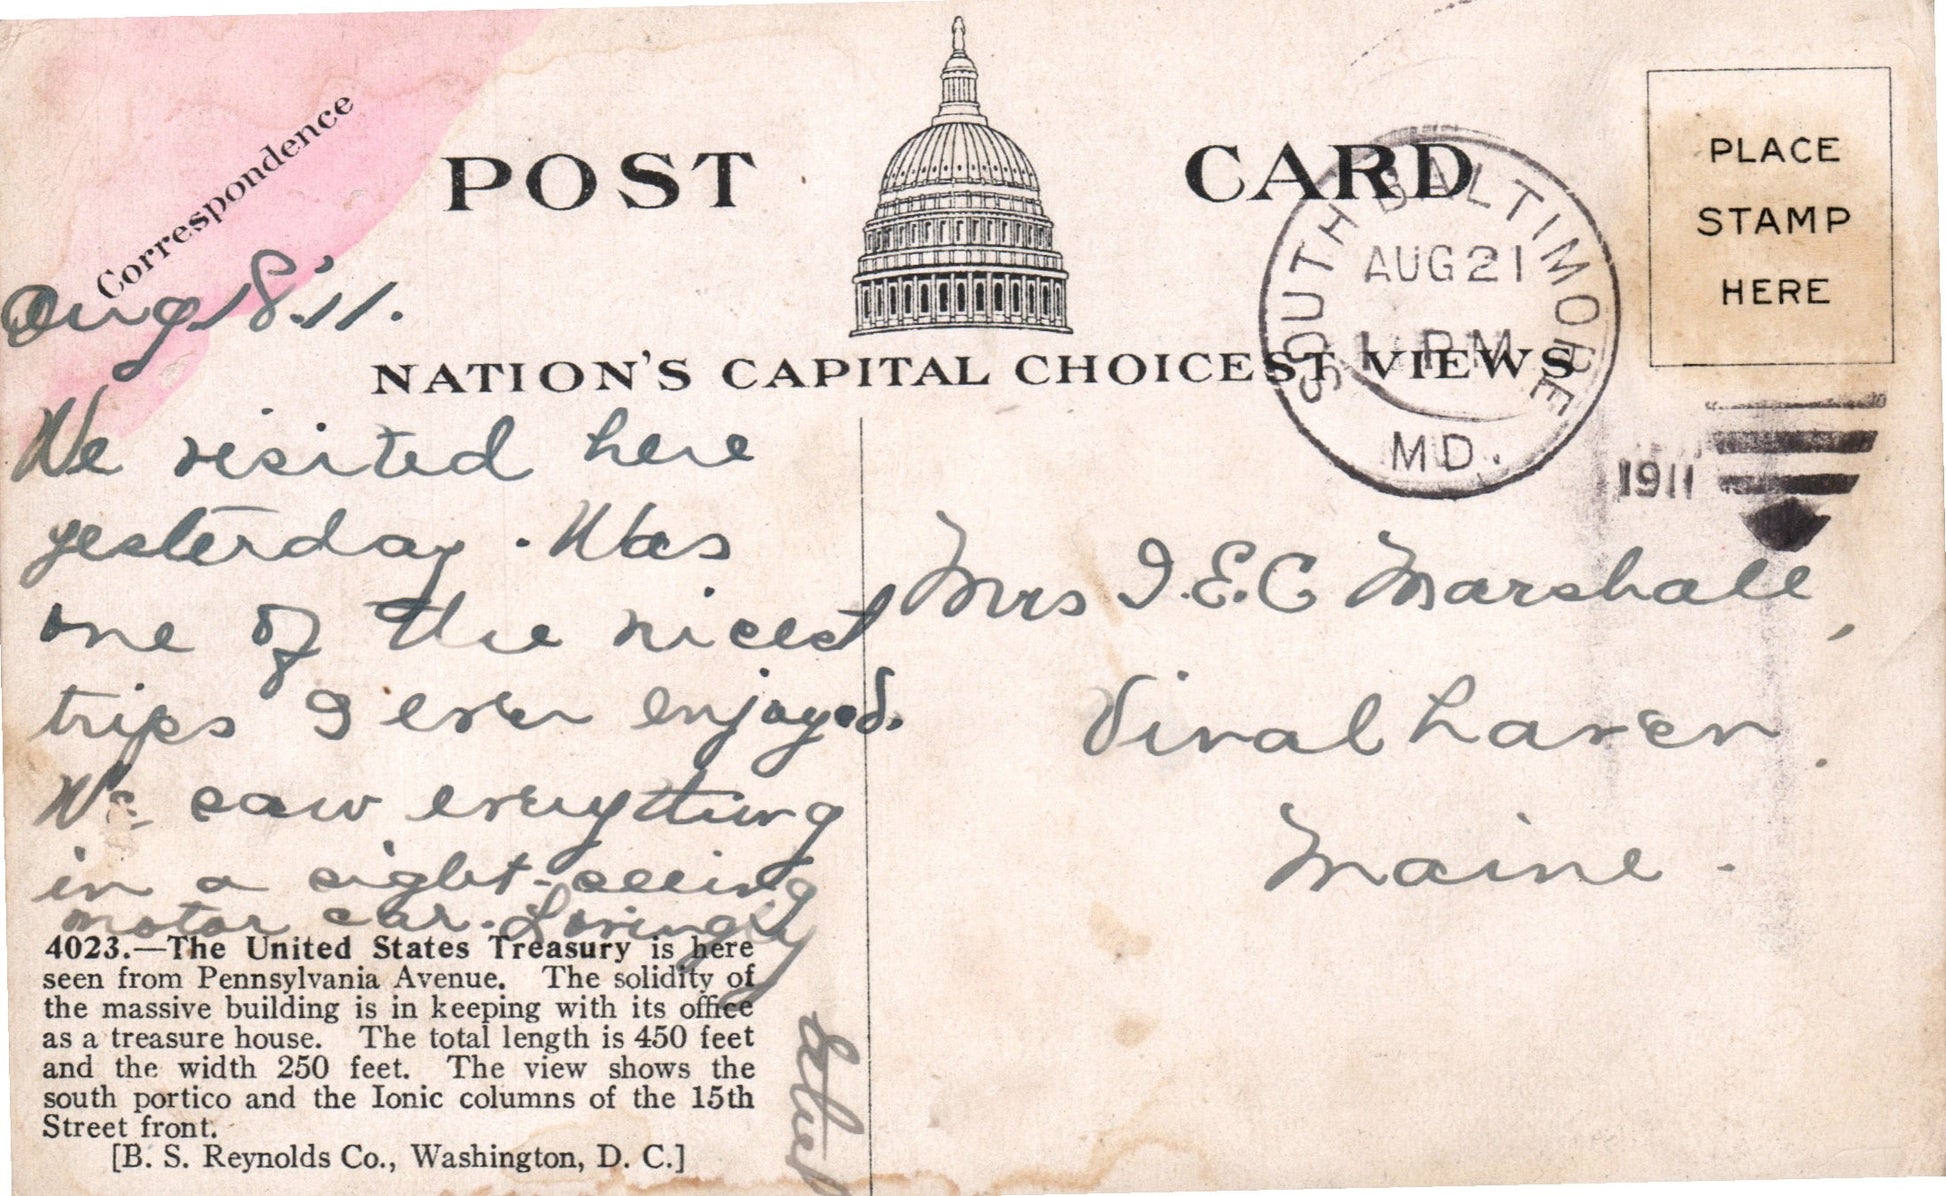 Correspondence
POST CARD
NATION'S CAPITAL CHOICEST VIEWS
PLACE
STAMP
HERE
SOUTH BALTIMORE
AUG 21
PM
MD.
1911
Aug. 18, '11.
We visited here
yesterday. Was
one of the nicest
trips I ever enjoyed.
We saw everything
in a sight-seeing
motor car. Lovingly
Ethel
4023.—The United States Treasury is here
seen from Pennsylvania Avenue. The solidity of
the massive building is in keeping with its office
as a treasure house. The total length is 450 feet
and the width 250 feet. The view shows the
south portico and the Ionic columns of the 15th
Street front.
[B. S. Reynolds Co., Washington, D. C.]
Mrs I.E.C Marshall,
Vinal haven.
Maine.